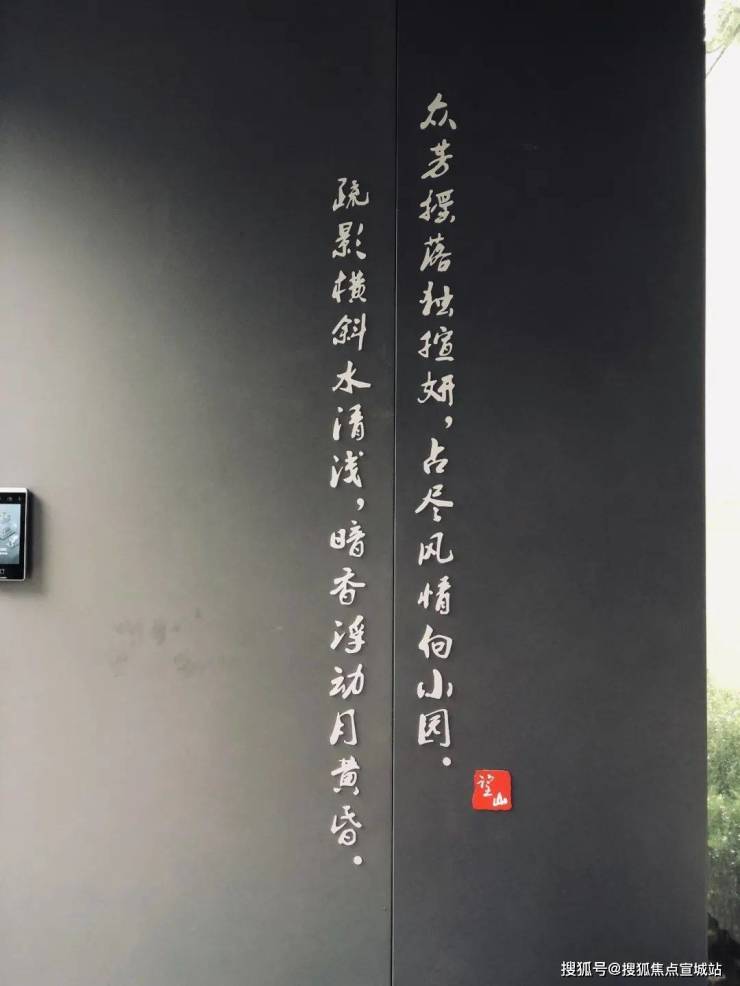 众芳摇落独揎妍，占尽风情向小园。
疏影横斜水清浅，暗香浮动月黄昏。
望山
搜狐号@搜狐焦点宣城站